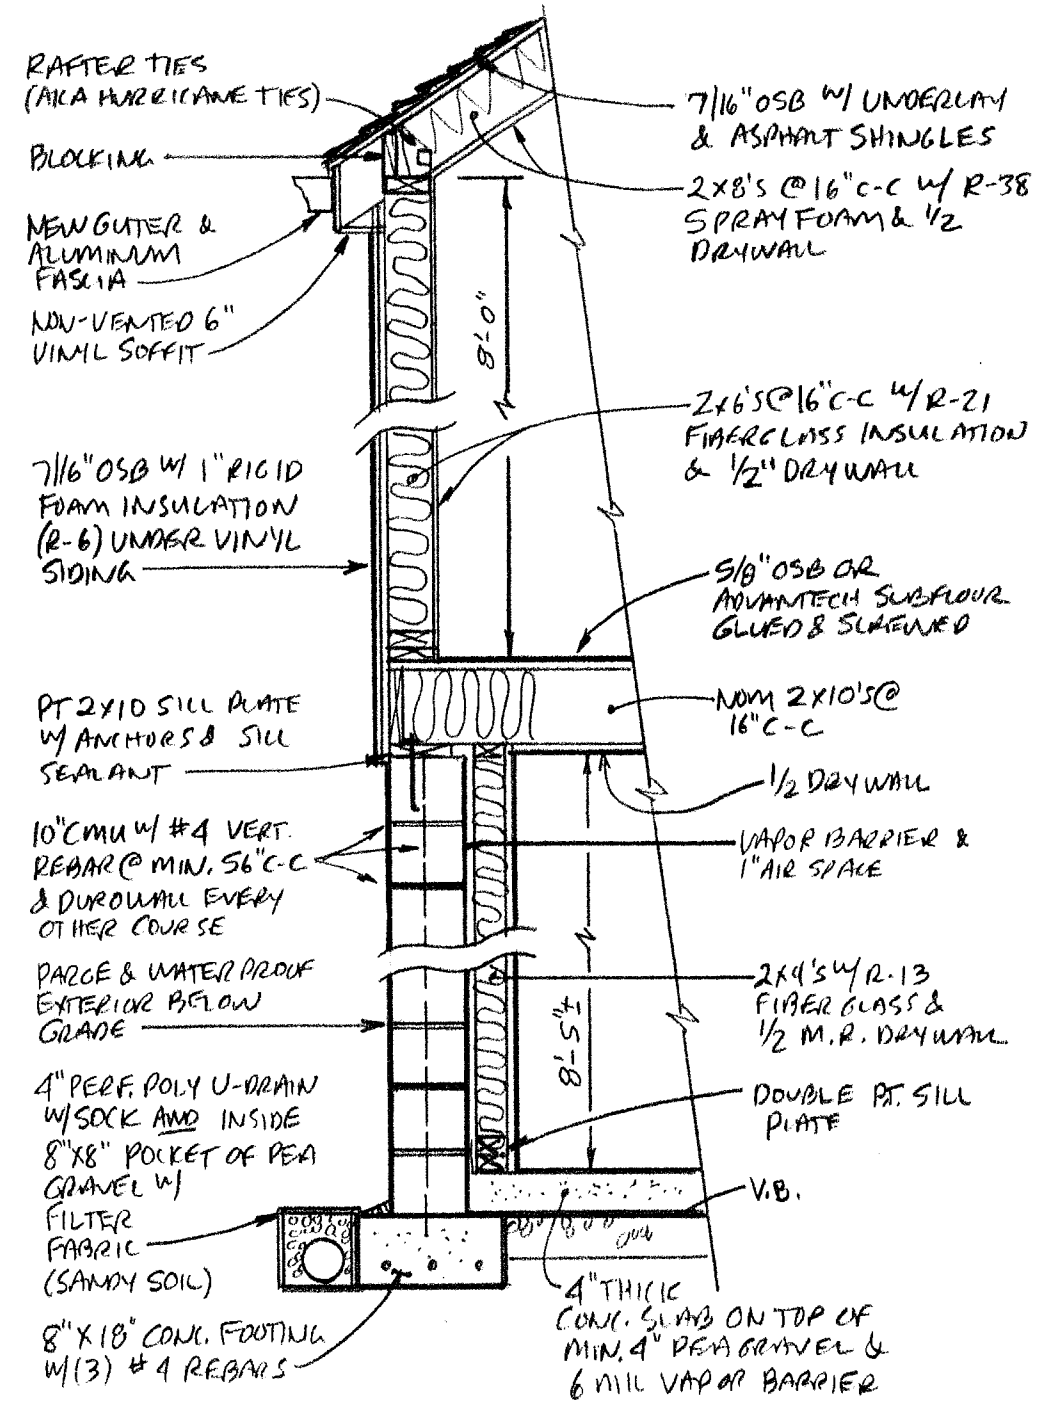 RAFTER TIES
(AKA HURRICANE TIES)
BLOCKING
NEW GUTER &
ALUMINUM
FASCIA
NON-VENTED 6"
VINYL SOFFIT
7/16" OSB W/ 1" RIGID
FOAM INSULATION
(R-6) UNDER VINYL
SIDING
PT 2X10 SILL PLATE
W/ ANCHORS & SILL
SEALANT
10" CMU W/ #4 VERT.
REBAR @ MIN. 56" C-C
& DUROWALL EVERY
OTHER COURSE
PARGE & WATERPROOF
EXTERIOR BELOW
GRADE
4" PERF. POLY U-DRAIN
W/SOCK AND INSIDE
8"X8" POCKET OF PEA
GRAVEL W/
FILTER
FABRIC
(SANDY SOIL)
8"X18" CONC. FOOTING
W/(3) #4 REBARS
7/16" OSB W/ UNDERLAY
& ASPHALT SHINGLES
2X8'S @ 16" C-C W/ R-38
SPRAY FOAM & 1/2
DRYWALL
8'-0"
2X6'S @ 16" C-C W/ R-21
FIBERGLASS INSULATION
& 1/2" DRYWALL
5/8" OSB OR
ADVANTECH SUBFLOUR
GLUED & SCREWED
NOM 2X10'S @
16" C-C
1/2 DRYWALL
VAPOR BARRIER &
1" AIR SPACE
2X4'S W/ R-13
FIBERGLASS &
1/2 M.R. DRYWALL
8'-5"±
DOUBLE P.T. SILL
PLATE
V.B.
4" THICK
CONC. SLAB ON TOP OF
MIN. 4" PEA GRAVEL &
6 MIL VAPOR BARRIER